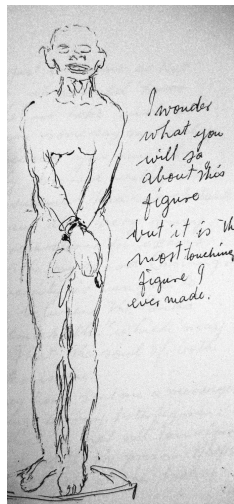 I wonder
what you
will sa
about this
figure
but it is th
most touching
figure I
ever made.